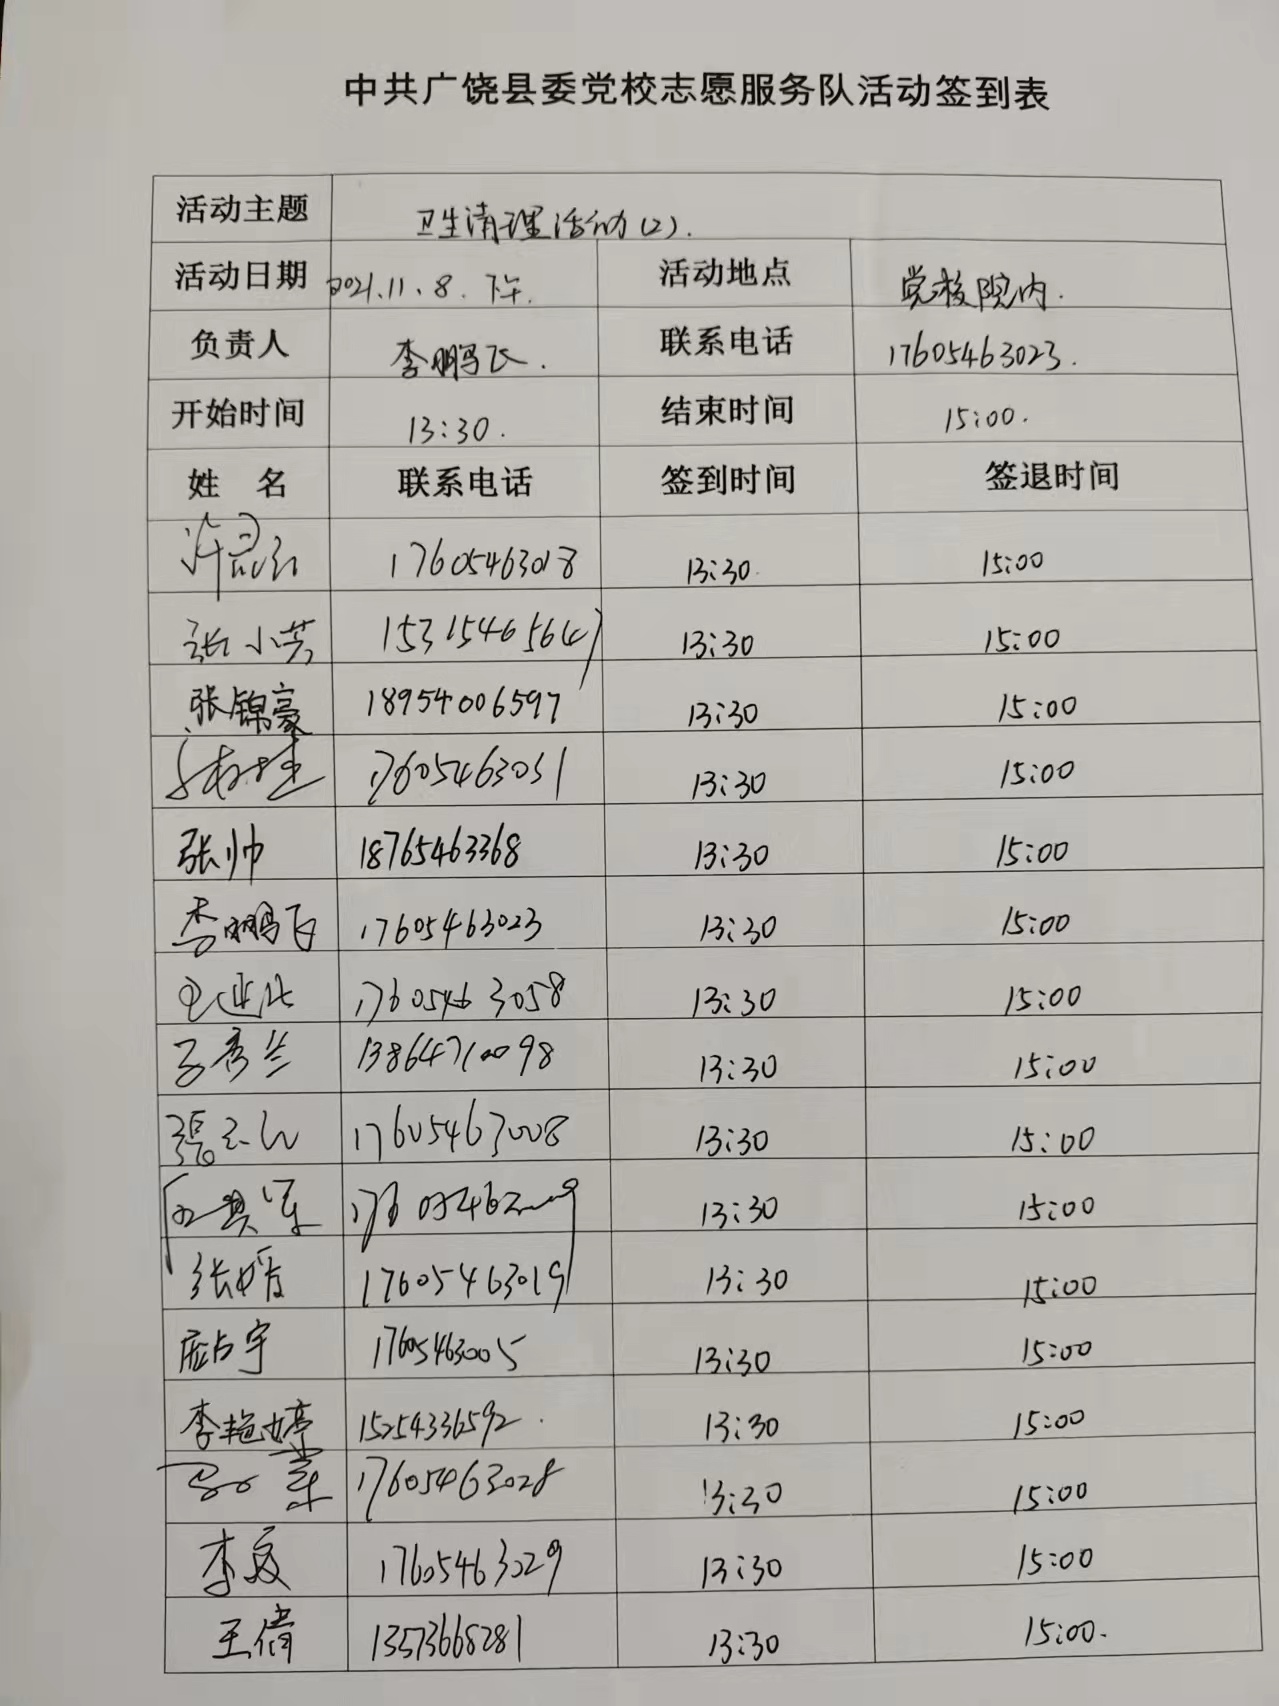 中共广饶县委党校志愿服务队活动签到表
活动主题 卫生清理活动(2).
活动日期 2021.11.8.下午. 活动地点 党校院内.
负责人 李鹏飞. 联系电话 17605463023.
开始时间 13:30. 结束时间 15:00.
姓 名 联系电话 签到时间 签退时间
17605463018 13:30 15:00
张小芳 15315465647 13:30 15:00
张锦豪 18954006597 13:30 15:00
17605463031 13:30 15:00
张帅 18765463368 13:30 15:00
李鹏飞 17605463023 13:30 15:00
17605463058 13:30 15:00
13864710098 13:30 15:00
17605463008 13:30 15:00
13:30 15:00
张媛 17605463019 13:30 15:00
庞占宇 17605463005 13:30 15:00
李艳婷 15254336592. 13:30 15:00
17605463028 13:30 15:00
17605463029 13:30 15:00
王倩 13573668281 13:30 15:00.